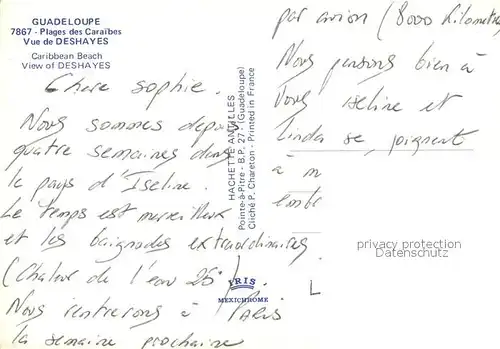 GUADELOUPE
7867 - Plages des Caraïbes
Vue de DESHAYES
Caribbean Beach
View of DESHAYES
Chère Sophie.
Nous sommes depuis
quatre semaines dans
le pays d'Iseline.
Le temps est merveilleux
et les baignades extraordinaires.
(Chaleur de l'eau 25°).
Nous rentrerons à PARIS
la semaine prochaine
par avion (8000 kilomètres
Nous pensons bien à
vous Iseline et
Linda se joignent
à m
embr
HACHETTE ANTILLES
Pointe-à-Pitre - B.P. 27 - (Guadeloupe)
Cliché P. Chareton - Printed in France
IRIS
MEXICHROME
privacy protection
Datenschutz